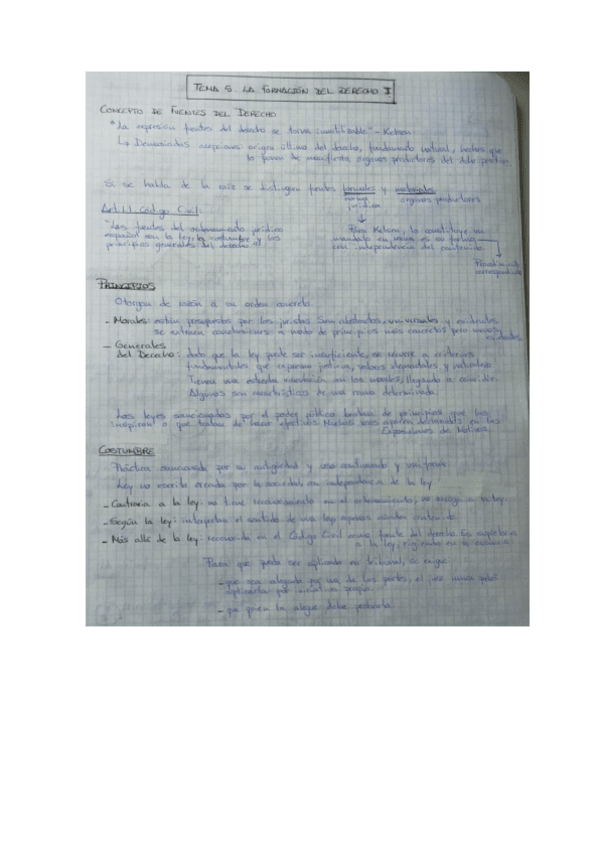 TEMA 5. LA FORMACIÓN DEL DERECHO I
CONCEPTO DE FUENTES DEL DERECHO
"La expresión fuentes del derecho se torna inutilizable" - Kelsen
↳ Demasiadas acepciones: origen último del derecho, fundamento natural, hechos que
lo ponen de manifiesto, órganos productores del dcho positivo
Si se habla de la raíz se distinguen fuentes formales y materiales
norma jurídica
órganos productores
Art. 1.1 Código Civil:
"Las fuentes del ordenamiento jurídico
español son la ley, la costumbre y los
principios generales del derecho"
Para Kelsen, lo constituye un
mandato en norma es su forma
con independencia del contenido.
correspondiente
PRINCIPIOS
Otorgan de razón a un orden concreto.
- Morales: están presupuestos por los juristas. Son abstractos, universales y evidentes
se extraen conclusiones a modo de principios más concretos pero menos
evidentes
- Generales
del Derecho: dado que la ley puede ser insuficiente, se recurre a criterios
fundamentales que expresan justicia, valores elementales y naturaleza
Tienen una estrecha vinculación con los morales, llegando a coincidir.
Algunos son característicos de una rama determinada.
Las leyes sancionadas por el poder público brotan de principios que las
inspiran o que tratan de hacer efectivos. Muchas veces aparecen declarados en las
Exposiciones de Motivos.
COSTUMBRE
Práctica sancionada por su antigüedad y uso continuado y uniforme.
Ley no escrita creada por la sociedad con independencia de la ley.
- Contraria a la ley: no tiene reconocimiento en el ordenamiento, se acoge a la ley.
- Según la ley: interpreta el sentido de una ley
- Más allá de la ley: reconocida en el Código Civil como fuente del derecho. Es supletoria
a la ley, rigiendo en su ausencia.
Para que pueda ser aplicada en tribunal, se exige:
- que sea alegada por una de las partes, el juez nunca podrá
aplicarla por iniciativa propia
- que quien la alegue debe probarla.